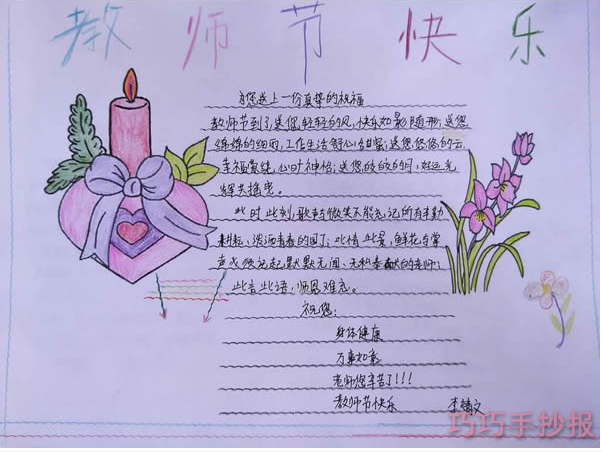 教师节快乐
为您送上一份真挚的祝福
教师节到了,送您轻轻的风,快乐如影随形;送您
绵绵的细雨,工作生活舒心甜馨;送您悠悠的云,
幸福萦绕,心旷神怡;送您皎皎的月,好运光
辉芙摇曳。
此时此刻,歌声与微笑不能忘记所有辛勤
耕耘、浇洒青春的园丁;此情此景,鲜花与掌
声永驻
默默无闻、无私奉献的老师;
此言此语,师恩难忘。
祝您:
身体健康
万事如意
老师您辛苦了!!!
教师节快乐
李
文
巧巧手抄报